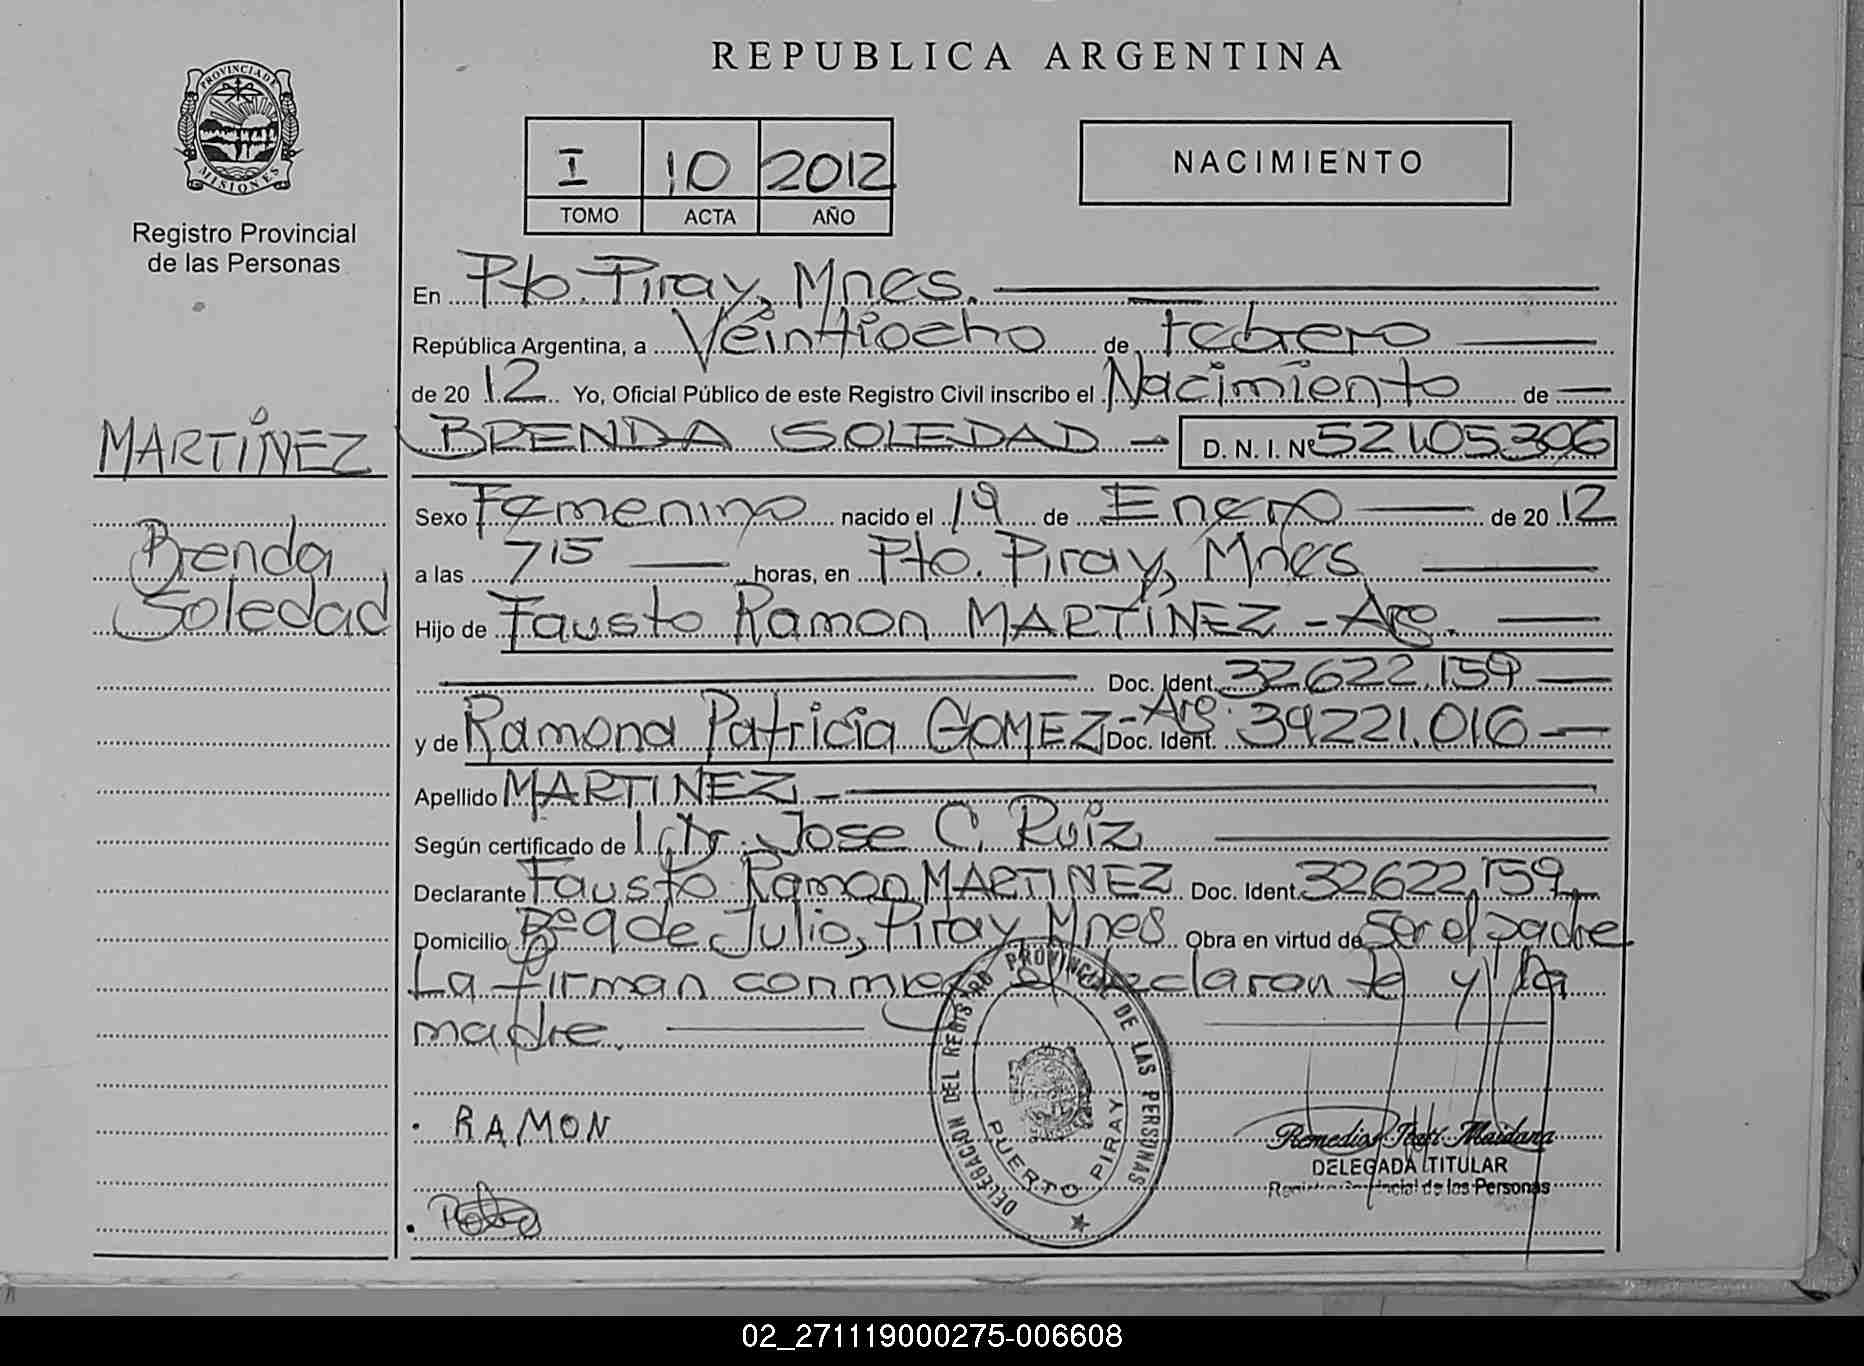 REPUBLICA ARGENTINA
PROVINCIA DE
MISIONES
Registro Provincial
de las Personas
I 10 2012
TOMO ACTA AÑO
NACIMIENTO
En Pto. Piray, Mnes.
República Argentina, a Veintiocho de Febrero
de 2012 Yo, Oficial Público de este Registro Civil inscribo el Nacimiento de
MARTÍNEZ
BRENDA SOLEDAD - D. N. I. Nº 52.105.306
Brenda
Soledad
Sexo Femenino nacido el 19 de Enero de 2012
a las 7 15 horas, en Pto. Piray, Mnes
Hijo de Fausto Ramon MARTÍNEZ - Arg.
Doc. Ident. 32.622.159
y de Ramona Patricia GOMEZ - Arg. Doc. Ident. 39.221.016
Apellido MARTINEZ
Según certificado de Dr. Jose C. Ruiz
Declarante Fausto Ramon MARTINEZ Doc. Ident. 32.622.159
Domicilio Bº 9 de Julio, Piray Mnes Obra en virtud de ser el padre
La firman conmigo el declarante y la
madre.
DELEGACION DEL REGISTRO PROVINCIAL DE LAS PERSONAS
PUERTO PIRAY
RAMON
Remedios Maidana
DELEGADA TITULAR
Registro Provincial de las Personas
02_271119000275-006608